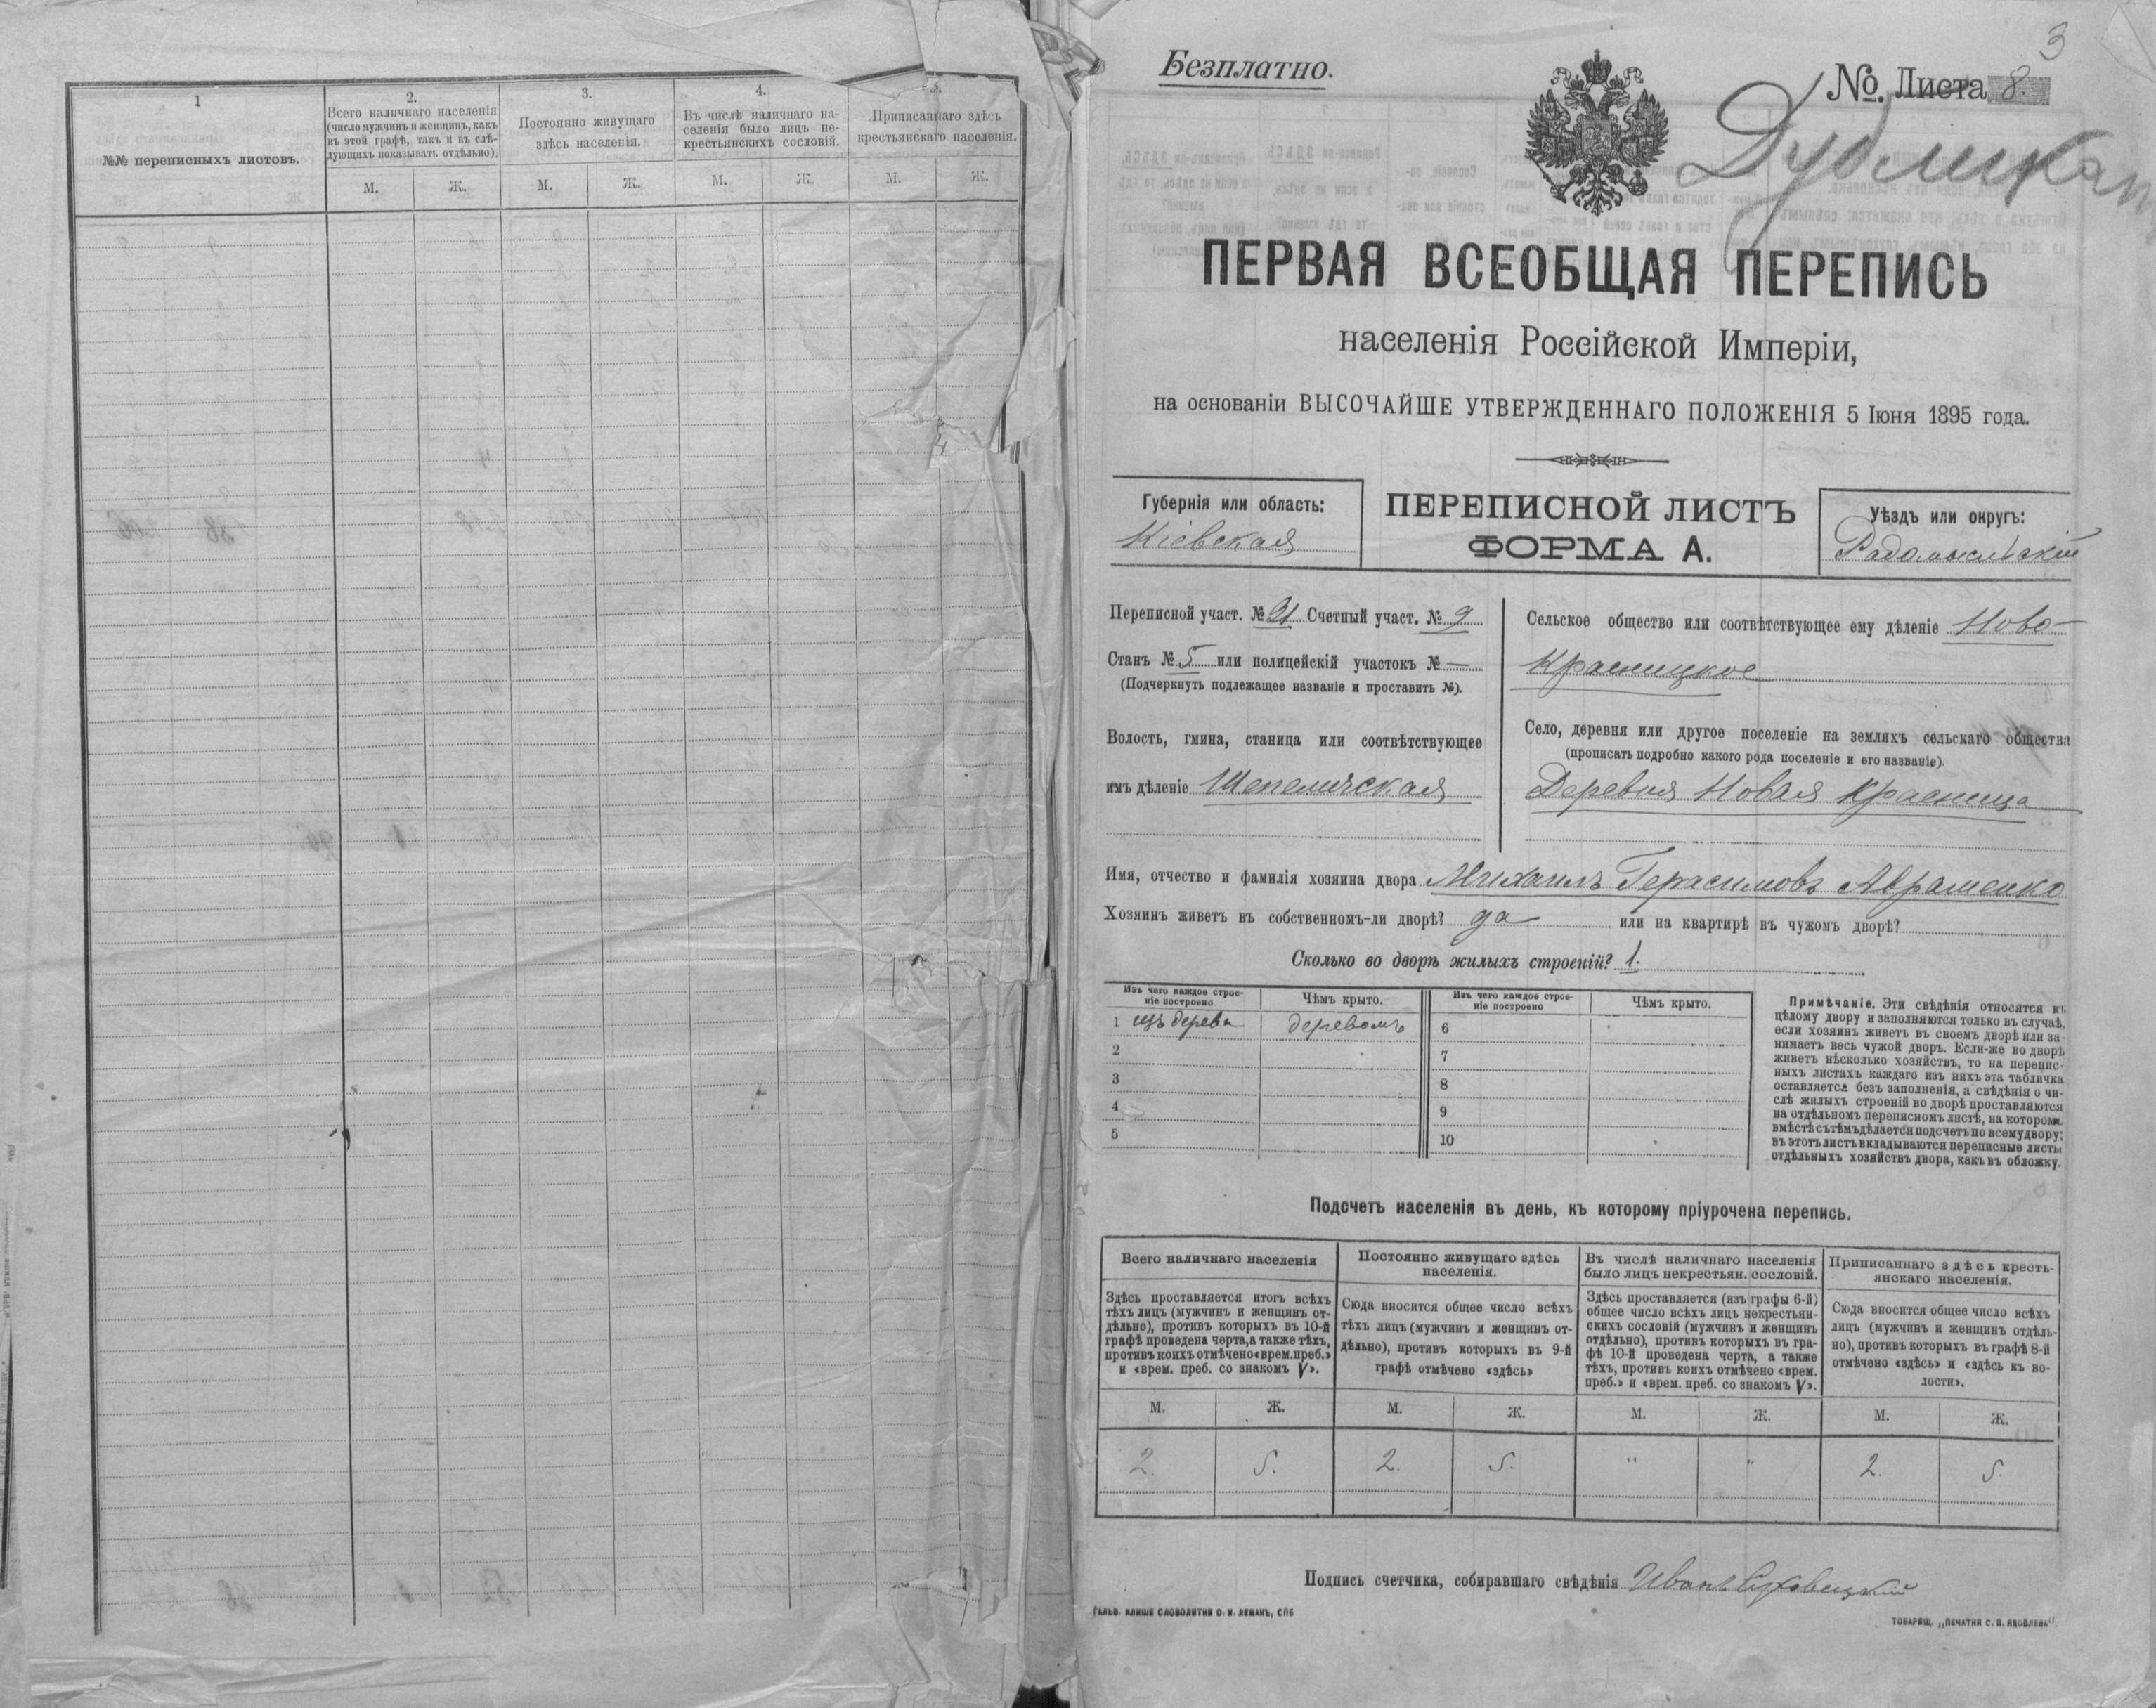 1
№№ переписныхъ листовъ.
2.
Всего наличнаго населенія
(число мужчинъ и женщинъ, какъ
въ этой графѣ, такъ и въ слѣ-
дующихъ показывать отдѣльно).
3.
Постоянно живущаго
здѣсь населенія.
4.
Въ числѣ наличнаго на-
селенія было лицъ не-
крестьянскихъ сословій.
5.
Приписаннаго здѣсь
крестьянскаго населенія.
М. Ж. М. Ж. М. Ж. М. Ж.
3
Безплатно.
№ Листа 8.
Дубликат
ПЕРВАЯ ВСЕОБЩАЯ ПЕРЕПИСЬ
населенія Россійской Имперіи,
на основаніи ВЫСОЧАЙШЕ УТВЕРЖДЕННАГО ПОЛОЖЕНІЯ 5 Іюня 1895 года.
Губернія или область:
Кіевская
ПЕРЕПИСНОЙ ЛИСТЪ
ФОРМА А.
Уѣздъ или округъ:
Радомысльскій
Переписной участ. № 21 Счетный участ. № 9
Станъ № 5 или полицейскій участокъ № —
(Подчеркнуть подлежащее названіе и проставить №).
Волость, гмина, станица или соотвѣтствующее
имъ дѣленіе Шепеличская
Сельское общество или соотвѣтствующее ему дѣленіе Ново-
Красницкое
Село, деревня или другое поселеніе на земляхъ сельскаго общества
(прописать подробно какого рода поселеніе и его названіе).
Деревня Новая Красница
Имя, отчество и фамилія хозяина двора Михаилъ Герасимовъ Авраменко
Хозяинъ живетъ въ собственномъ-ли дворѣ? да или на квартирѣ въ чужомъ дворѣ?
Сколько во дворѣ жилыхъ строеній? 1.
Изъ чего каждое строе-
ніе построено
Чѣмъ крыто.
Изъ чего каждое строе-
ніе построено
Чѣмъ крыто.
1 изъ дерева деревомъ 6
2 7
3 8
4 9
5 10
Примѣчаніе. Эти свѣдѣнія относятся къ
цѣлому двору и заполняются только въ случаѣ,
если хозяинъ живетъ въ своемъ дворѣ или за-
нимаетъ весь чужой дворъ. Если-же во дворѣ
живетъ нѣсколько хозяйствъ, то на перепис-
ныхъ листахъ каждаго изъ нихъ эта табличка
оставляется безъ заполненія, а свѣдѣнія о чи-
слѣ жилыхъ строеній во дворѣ проставляются
на отдѣльномъ переписномъ листѣ, на которомъ
вмѣстѣ съ тѣмъ дѣлается подсчетъ по всему двору;
въ этотъ листъ вкладываются переписные листы
отдѣльныхъ хозяйствъ двора, какъ въ обложку.
Подсчетъ населенія въ день, къ которому пріурочена перепись.
Всего наличнаго населенія
Здѣсь проставляется итогъ всѣхъ
тѣхъ лицъ (мужчинъ и женщинъ от-
дѣльно), противъ которыхъ въ 10-й
графѣ проведена черта, а также тѣхъ,
противъ коихъ отмѣчено «врем. преб.»
и «врем. преб. со знакомъ V».
Постоянно живущаго здѣсь
населенія.
Сюда вносится общее число всѣхъ
тѣхъ лицъ (мужчинъ и женщинъ от-
дѣльно), противъ которыхъ въ 9-й
графѣ отмѣчено «здѣсь»
Въ числѣ наличнаго населенія
было лицъ некрестьян. сословій.
Здѣсь проставляется (изъ графы 6-й)
общее число всѣхъ лицъ некрестьян-
скихъ сословій (мужчинъ и женщинъ
отдѣльно), противъ которыхъ въ гра-
фѣ 10-й проведена черта, а также
тѣхъ, противъ коихъ отмѣчено «врем.
преб.» и «врем. преб. со знакомъ V».
Приписаннаго здѣсь кресть-
янскаго населенія.
Сюда вносится общее число всѣхъ
лицъ (мужчинъ и женщинъ отдѣль-
но), противъ которыхъ въ графѣ 8-й
отмѣчено «здѣсь» и «здѣсь къ во-
лости».
М. Ж. М. Ж. М. Ж. М. Ж.
2. 5. 2. 5. " " 2. 5.
Подпись счетчика, собиравшаго свѣдѣнія Иванъ
ГАЛЬВ. КЛИШЕ СЛОВОЛИТНИ О. И. ЛЕМАНЪ, СПБ
ТОВАРИЩ. „ПЕЧАТНЯ С. П. ЯКОВЛЕВА"